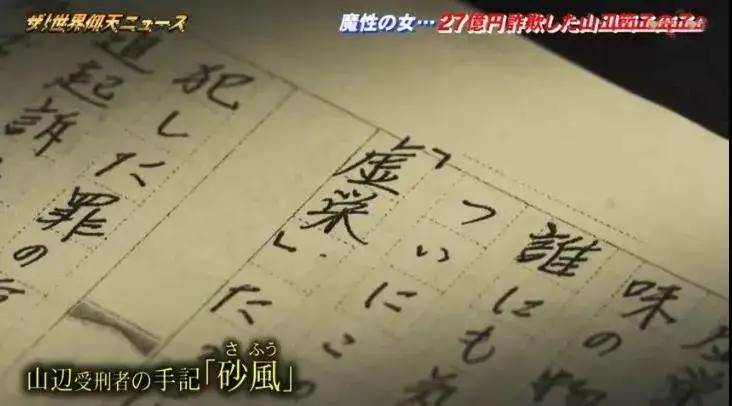 ザ!世界仰天ニュース
魔性の女…27億円詐欺した山辺
味の物
誰にも気
ついに
「虚栄」た
犯した罪の
追起訴
山辺受刑者の手記「砂風」
さふう